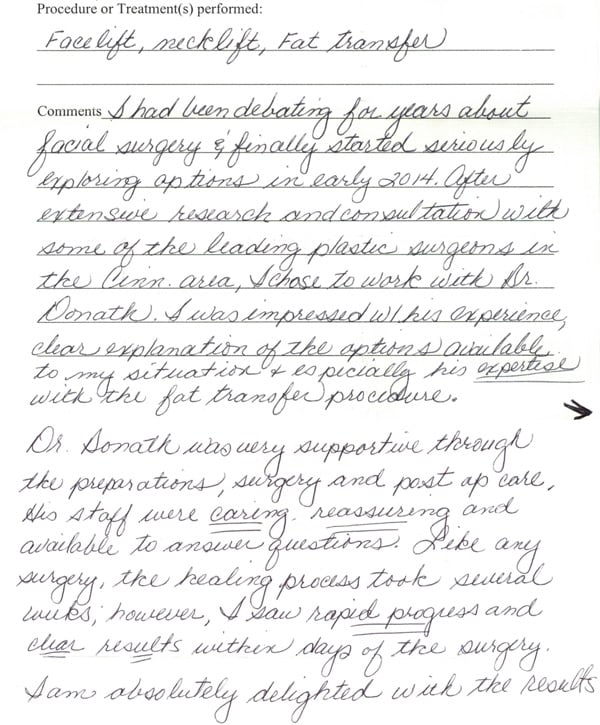 Procedure or Treatment(s) performed:
Facelift, necklift, Fat transfer
Comments I had been debating for years about
facial surgery & finally started seriously
exploring options in early 2014. After
extensive research and consultation with
some of the leading plastic surgeons in
the Cinn. area, I chose to work with Dr.
Donath. I was impressed w/ his experience,
clear explanation of the options available
to my situation & especially his expertise
with the fat transfer procedure.
Dr. Donath was very supportive through
the preparations, surgery and post op care.
His staff were caring, reassuring and
available to answer questions. Like any
surgery, the healing process took several
weeks; however, I saw rapid progress and
clear results within days of the surgery.
I am absolutely delighted with the results